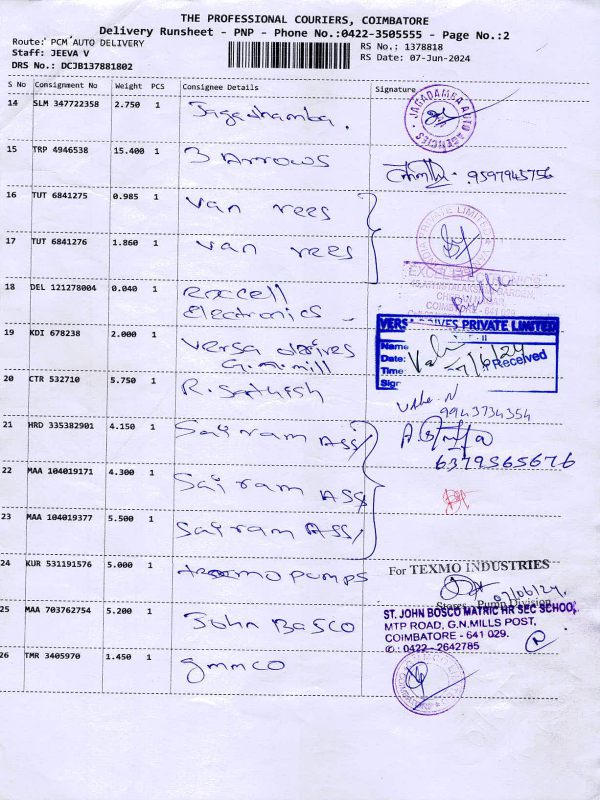 THE PROFESSIONAL COURIERS, COIMBATORE
Delivery Runsheet - PNP - Phone No.:0422-3505555 - Page No.:2
Route: PCM AUTO DELIVERY
RS No.: 1378818
Staff: JEEVA V
RS Date: 07-Jun-2024
DRS No.: DCJB137881802
S No Consignment No Weight PCS Consignee Details Signature
14 SLM 347722358 2.750 1 Jagadhamba.
JAGADAMBA AUTO AGENCIES
15 TRP 4946538 15.400 1 3 Arrows
9597945756
16 TUT 6841275 0.985 1 van rees
PRIVATE LIMITED
17 TUT 6841276 1.860 1 van rees
18 DEL 121278004 0.040 1 Roxcell
Electronics
COIMBATORE - 641 029
19 KDI 678238 2.000 1 Versa drives
G.N.mill
PRIVATE LIMITED
Name
Date:
Time:
Sign
7/6/24
Received
20 CTR 532710 5.750 1 R. Sathish
9943734354
21 HRD 335382901 4.150 1 Sai ram Ass
6379565676
22 MAA 104019171 4.300 1 Sai ram Ass
23 MAA 104019377 5.500 1 Sai ram Ass
24 KUR 531191576 5.000 1 texmo pumps
For TEXMO INDUSTRIES
07/06/24.
Stores - Pump Division
25 MAA 703762754 5.200 1 John Basco
ST. JOHN BOSCO MATRIC HR SEC SCHOOL
MTP ROAD, G.N.MILLS POST,
COIMBATORE - 641 029.
✆: 0422 - 2642785
26 TMR 3405970 1.450 1 gmmco